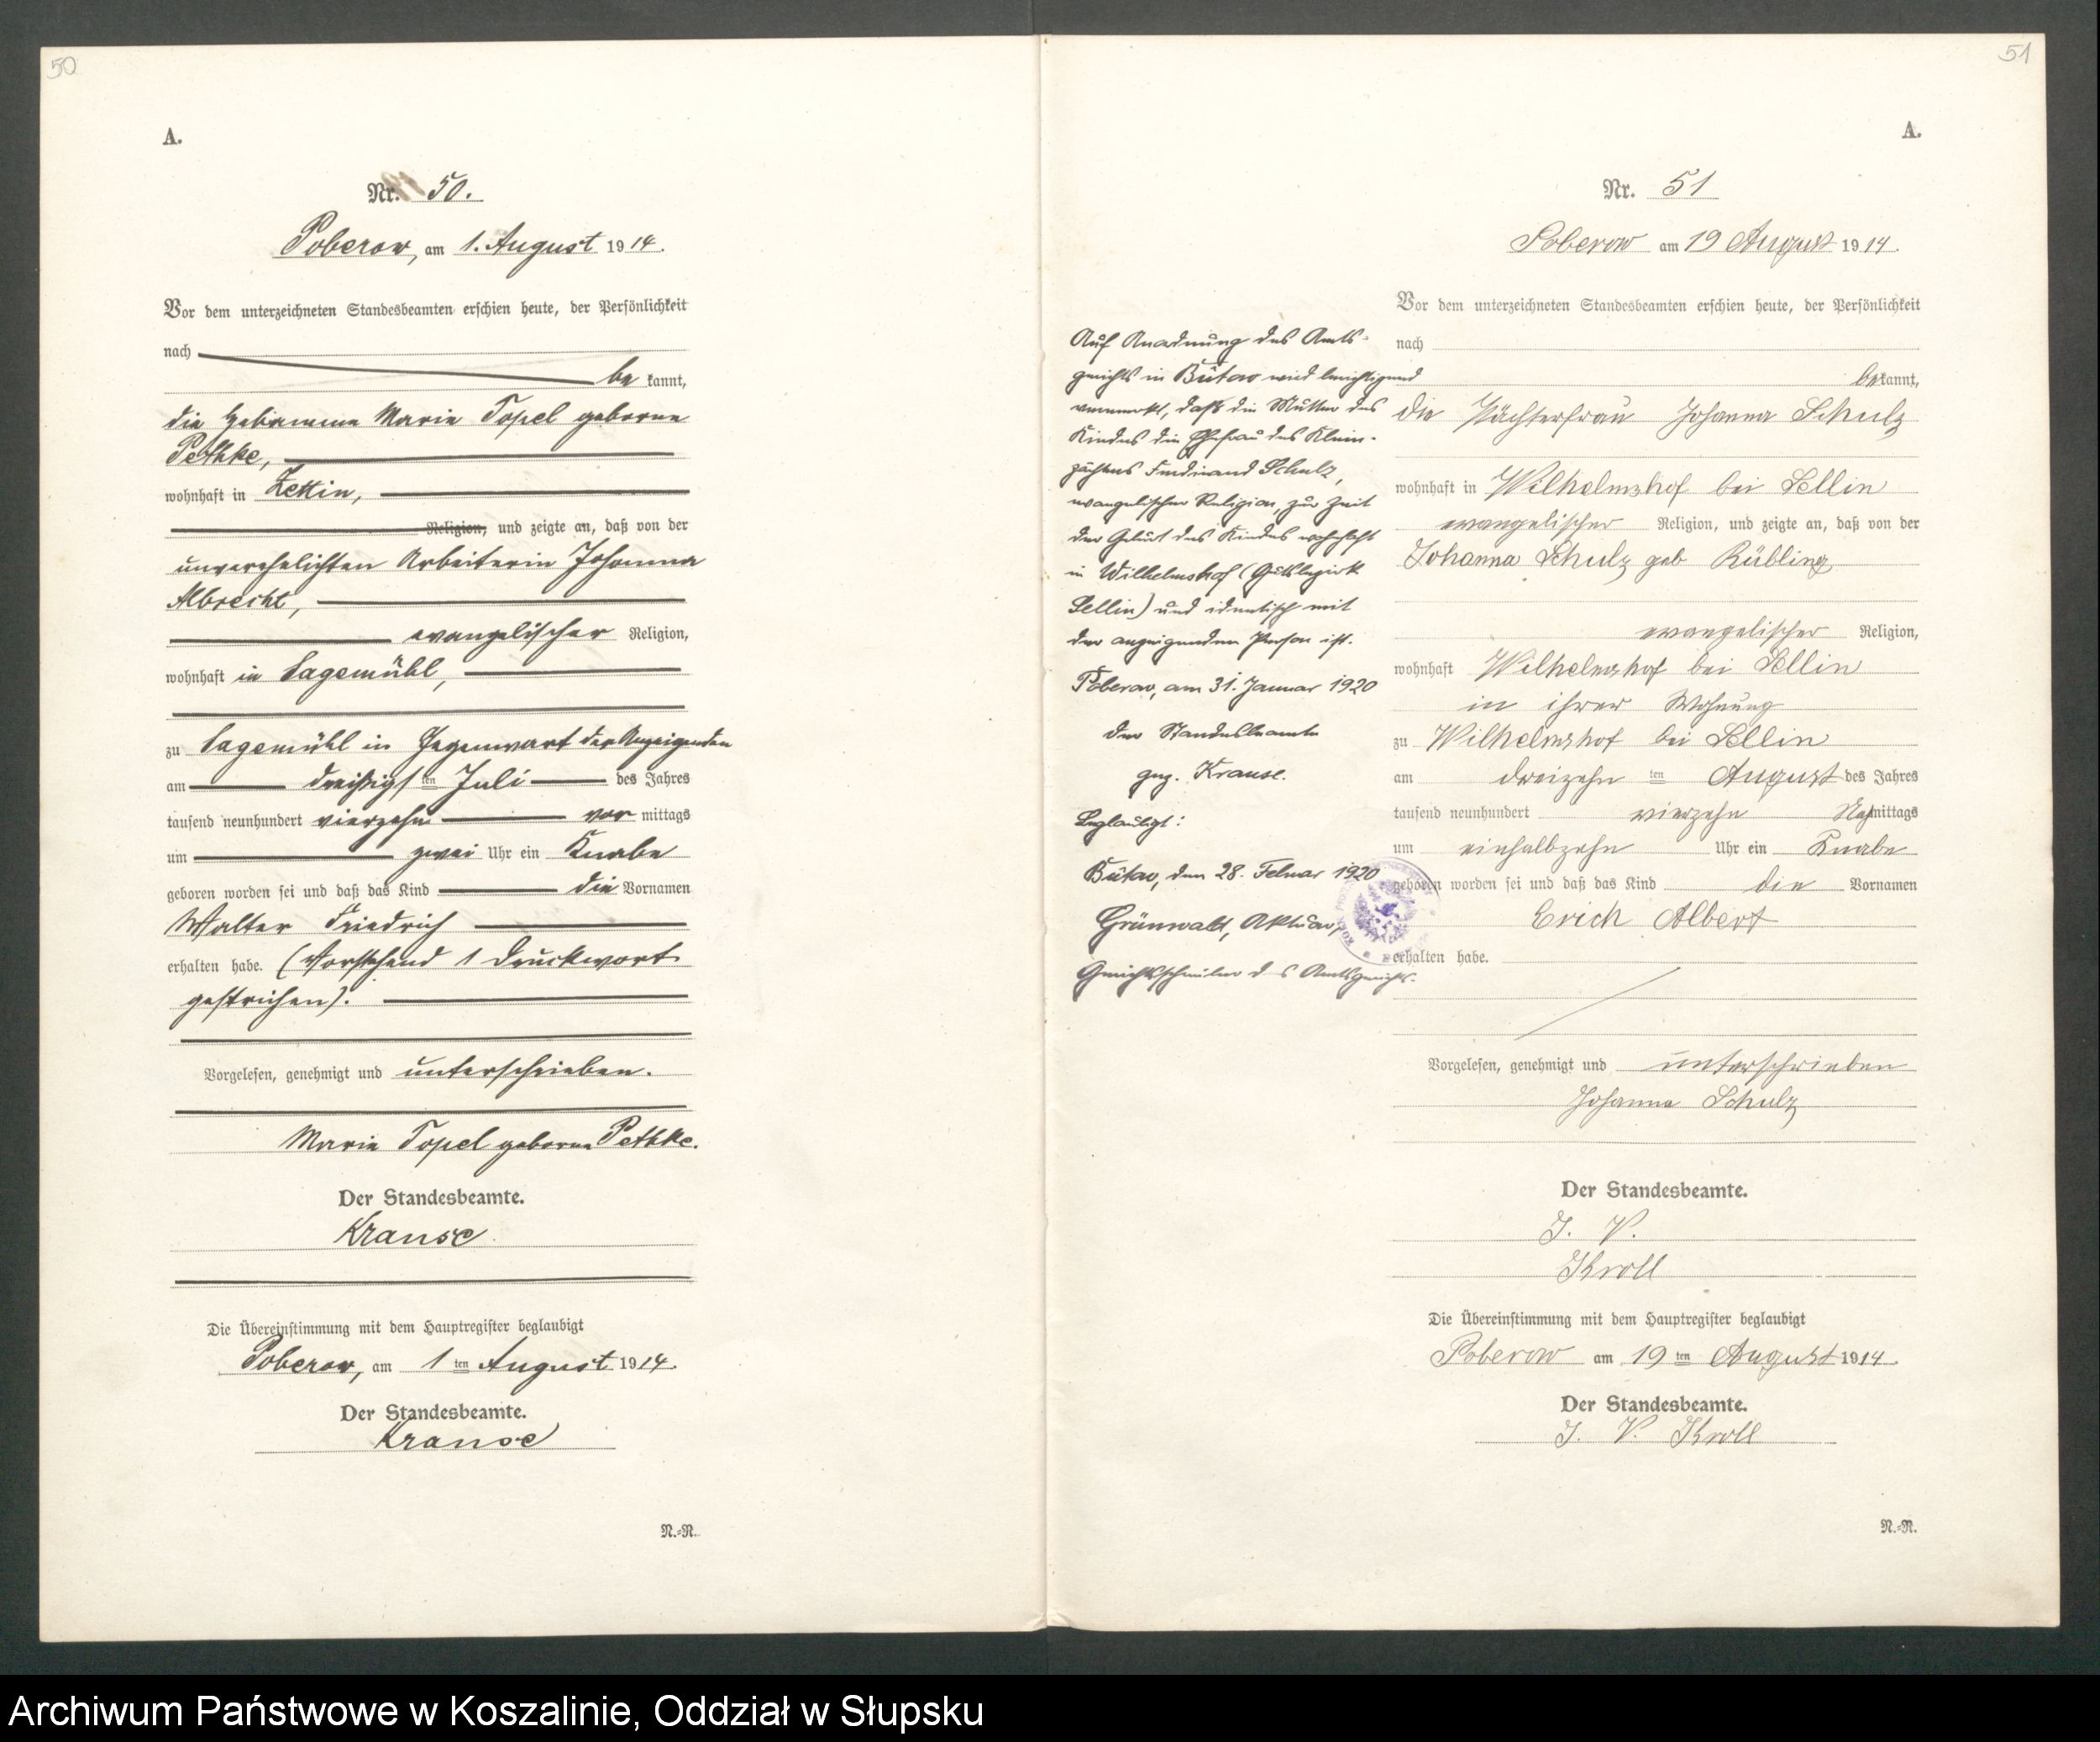 50
A.
Nr. 50.
Poberow, am 1. August 1914.
Vor dem unterzeichneten Standesbeamten erschien heute, der Persönlichkeit
nach
be kannt,
die Hebamme Marie Topel geborne
Pethke,
wohnhaft in Zettin,
Religion, und zeigte an, daß von der
unverehelichten Arbeiterin Johanna
Albrecht,
evangelischer Religion,
wohnhaft in Sagemühl,
zu Sagemühl in Gegenwart der Anzeigenden
am dreißigsten Juli des Jahres
tausend neunhundert vierzehn vor mittags
um zwei Uhr ein Knabe
geboren worden sei und daß das Kind die Vornamen
Walter Friedrich
erhalten habe. (Vorstehend 1 Druckwort
gestrichen).
Vorgelesen, genehmigt und unterschrieben.
Marie Topel geborne Pethke.
Der Standesbeamte.
Krause
Die Übereinstimmung mit dem Hauptregister beglaubigt
Poberow, am 1 ten August 1914.
Der Standesbeamte.
Krause
N.=N.
51
A.
Nr. 51
Poberow am 19 August 1914.
Vor dem unterzeichneten Standesbeamten erschien heute, der Persönlichkeit
nach
bekannt,
die Pächterfrau Johanna Schulz
wohnhaft in Wilhelmshof bei Sellin
evangelischer Religion, und zeigte an, daß von der
Johanna Schulz geb Rübling
evangelischer Religion,
wohnhaft Wilhelmshof bei Sellin
in ihrer Wohnung
zu Wilhelmshof bei Sellin
am dreizehn ten August des Jahres
tausend neunhundert vierzehn Nachmittags
um einhalbzehn Uhr ein Knabe
geboren worden sei und daß das Kind die Vornamen
Erich Albert
erhalten habe.
Vorgelesen, genehmigt und unterschrieben
Johanna Schulz
Der Standesbeamte.
J. V.
Kroll
Die Übereinstimmung mit dem Hauptregister beglaubigt
Poberow am 19 ten August 1914.
Der Standesbeamte.
J. V. Kroll
N.=N.
Auf Anordnung des Amts-
gerichts in Bütow wird berichtigend
vermerkt, daß die Mutter des
Kindes die Ehefrau des Klein-
pächters Ferdinand Schulz,
evangelischer Religion, zur Zeit
der Geburt des Kindes wohnhaft
in Wilhelmshof (Gutsbezirk
Sellin) und identisch mit
der anzeigenden Person ist.
Poberow, am 31. Januar 1920
der Standesbeamte
gez. Krause.
Beglaubigt:
Bütow, den 28. Februar 1920
Grünwald, Aktuar,
Gerichtsschreiber d s Amtsgerichts.
Archiwum Państwowe w Koszalinie, Oddział w Słupsku